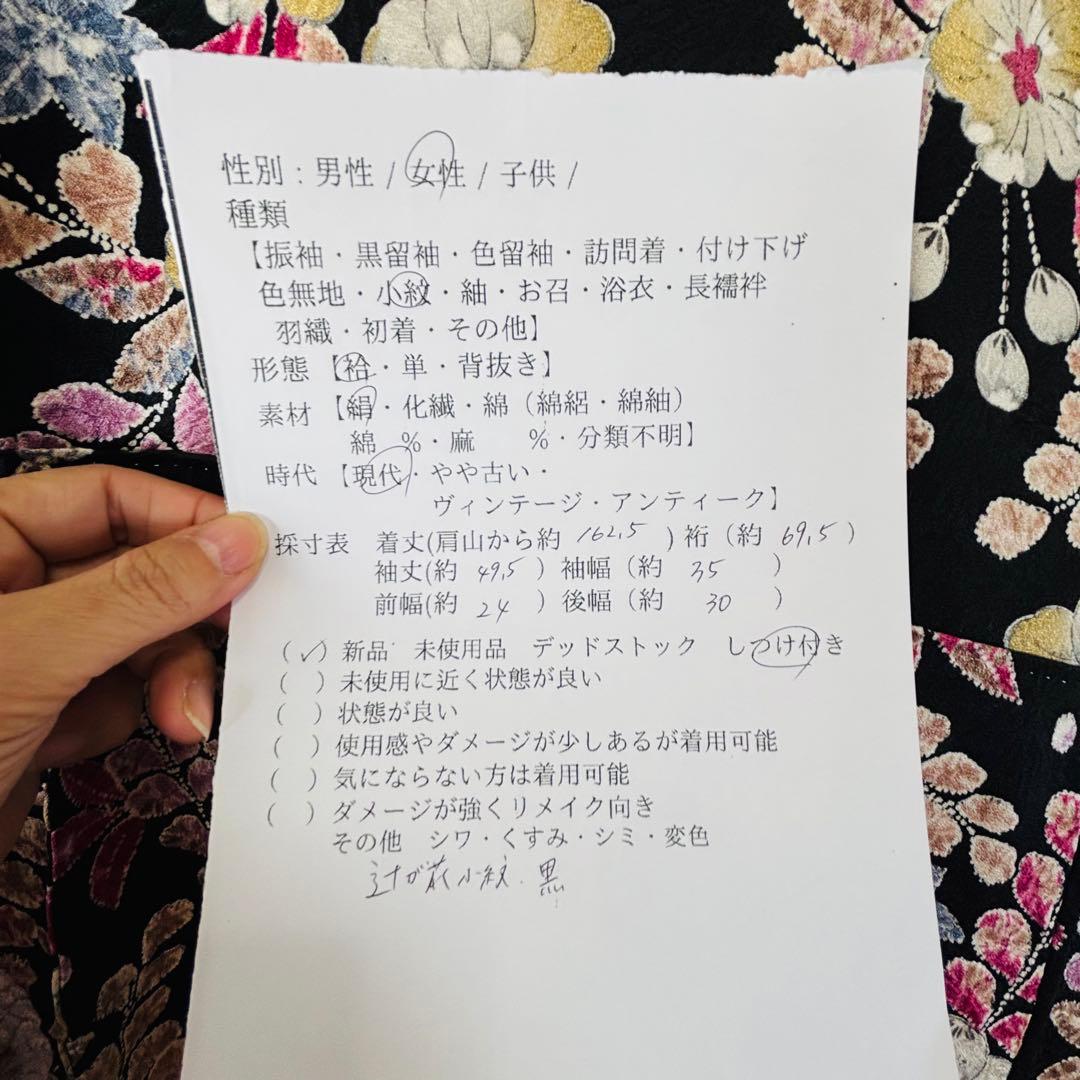 性別：男性 / 女性 / 子供 /
種類
【振袖・黒留袖・色留袖・訪問着・付け下げ
色無地・小紋・紬・お召・浴衣・長襦袢
羽織・初着・その他】
形態【袷・単・背抜き】
素材【絹・化繊・綿（綿絽・綿紬）
綿　％・麻　％・分類不明】
時代【現代・やや古い・
ヴィンテージ・アンティーク】
採寸表　着丈(肩山から約 162,5 ) 裄（約 69,5 ）
袖丈(約 49,5 ）袖幅（約 35 ）
前幅(約 24 ）後幅（約 30 ）
（✓）新品　未使用品　デッドストック　しつけ付き
（　）未使用に近く状態が良い
（　）状態が良い
（　）使用感やダメージが少しあるが着用可能
（　）気にならない方は着用可能
（　）ダメージが強くリメイク向き
その他　シワ・くすみ・シミ・変色
辻が花小紋．黒